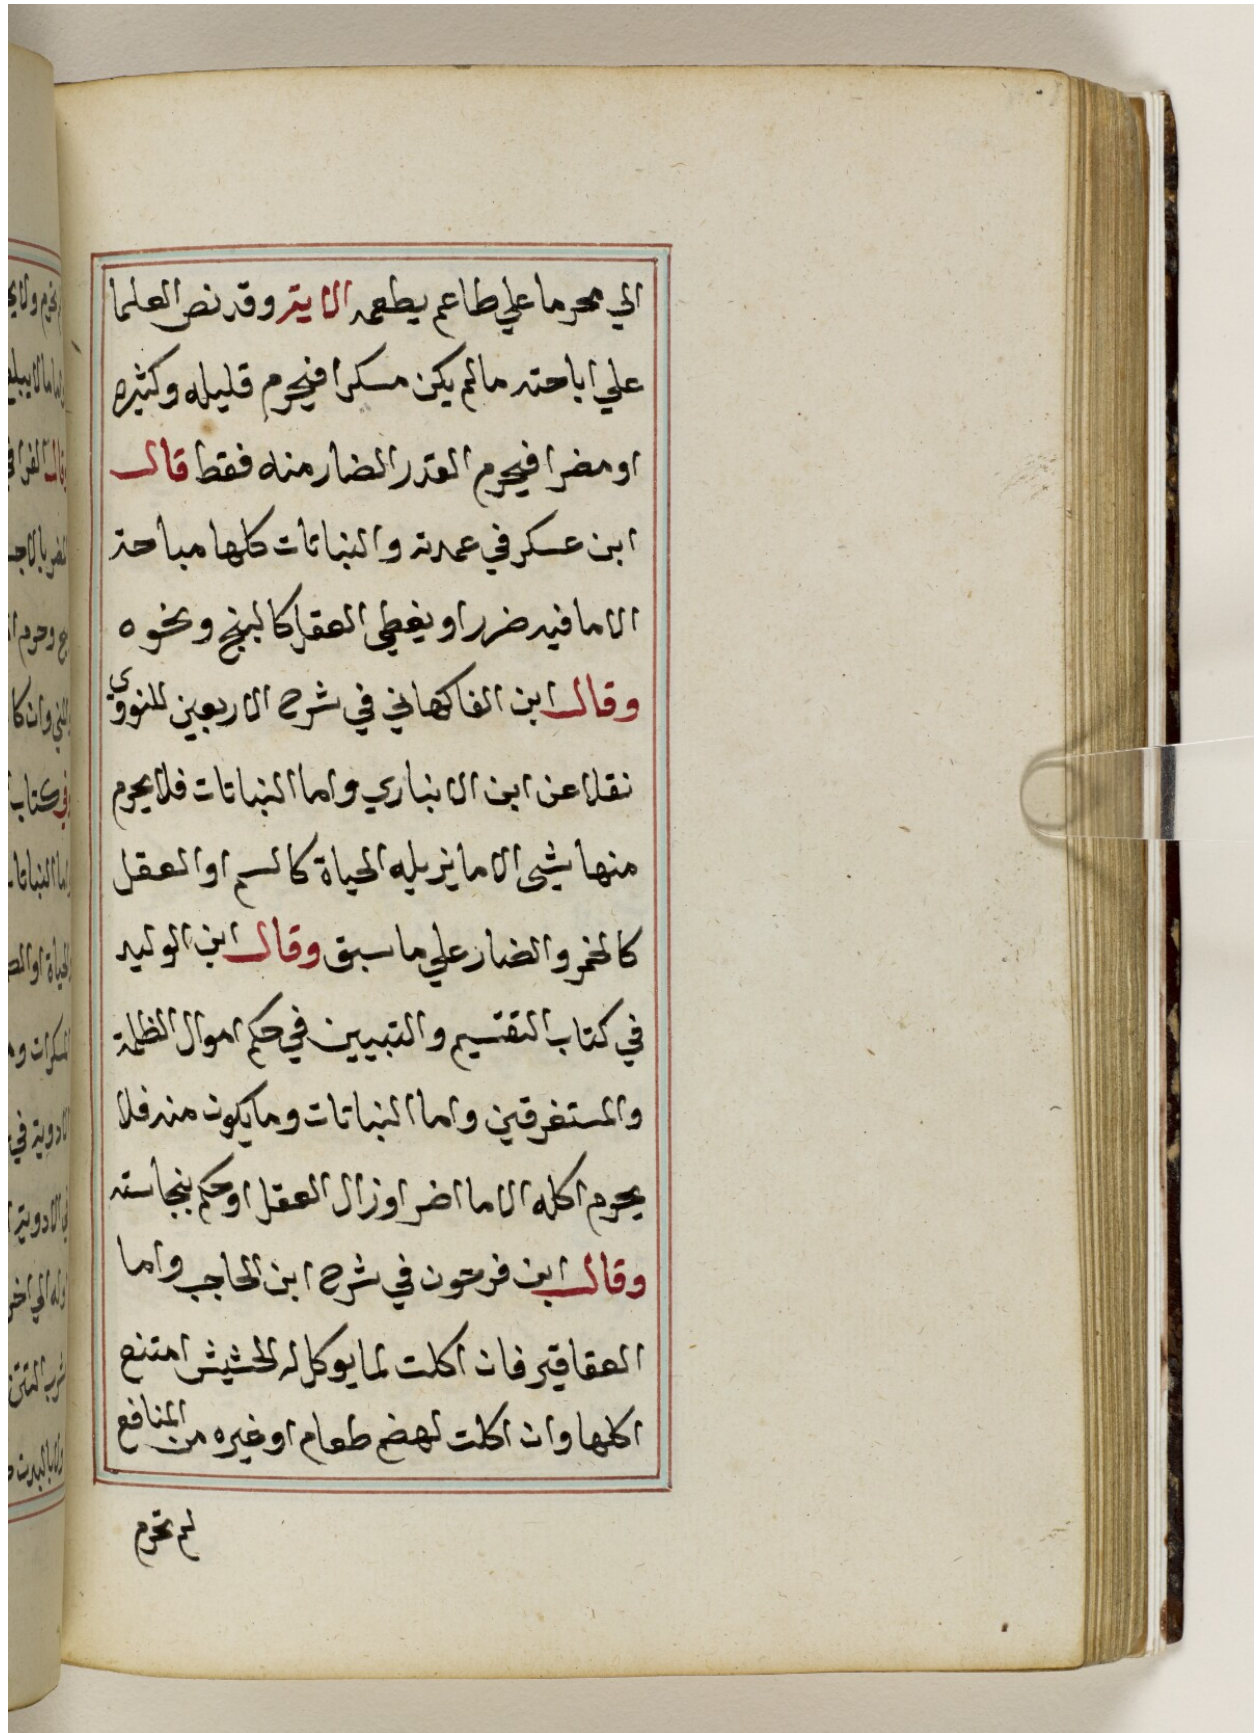 الي محرما علي طاعم يطعمه الاية وقد نص العلما
علي اباحته مالم يكن مسكرا فيحرم قليله وكثيره
او مضرا فيحرم القدر الضار منه فقط قال
ابن عسكر في عمدته والنباتات كلها مباحة
الا ما فيه ضرر او يغطي العقل كالبنج ونحوه
وقال ابن الفاكهاني في شرح الاربعين للنووي
نقلا عن ابن الانباري واما النباتات فلا يحرم
منها شيى الا ما يزيله الحياة كالسم او العقل
كالخمر والضار علي ما سبق وقال ابن الوليد
في كتاب التقسيم والتبيين في حكم اموال الظلمة
والمستغرقين واما النباتات وما يكون منه فلا
يحرم اكله الا ما اضر او زال العقل او حكم بنجاسته
وقال ابن فرحون في شرح ابن الحاجب واما
العقاقير فان اكلت لما يوكل له الحشيش امتنع
اكلها وان اكلت لهضم طعام او غيره من المنافع
لم تحرم